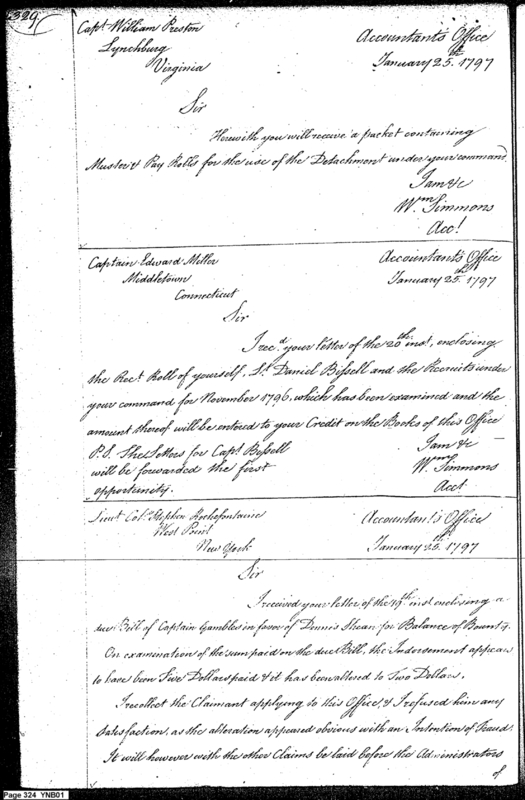 329
Capt. William Preston
Lynchburg
Virginia
Accountants Office
January 25th. 1797
Sir
Herewith you will receive a packet containing
Muster & Pay Rolls for the use of the Detachment under your command.
I am &c
Wm Simmons
Acct.
Captain Edward Miller
Middletown
Connecticut
Accountants Office
January 25th. 1797
Sir
I recd. your letter of the 20th inst, enclosing
the Rect. Roll of yourself, Lt. Daniel Bissell and the Recruits under
your command for November 1796, which has been examined and the
amount thereof will be entered to your Credit on the Books of this Office
P.S. The Letters for Capt Bissell
will be forwarded the first
opportunity.
I am &c
Wm Simmons
Acct
Lieut. Col. Stephen Rochefontaine
West Point
New York
Accountant's Office
January 25th. 1797
Sir
I received your letter of the 19th inst enclosing a
due Bill of Captain Gambles in favor of Dennis for Balance of Bounty.
On examination of the sum paid on the due Bill, the Indorsement appears
to have been Five Dollars paid & it has been altered to Two Dollars.
I recollect the Claimant applying to this Office, & I refused him any
Satisfaction, as the alteration appeared obvious with an Intention of Fraud.
It will however with the other Claims be laid before the Administrators
of
Page 324 YNB01